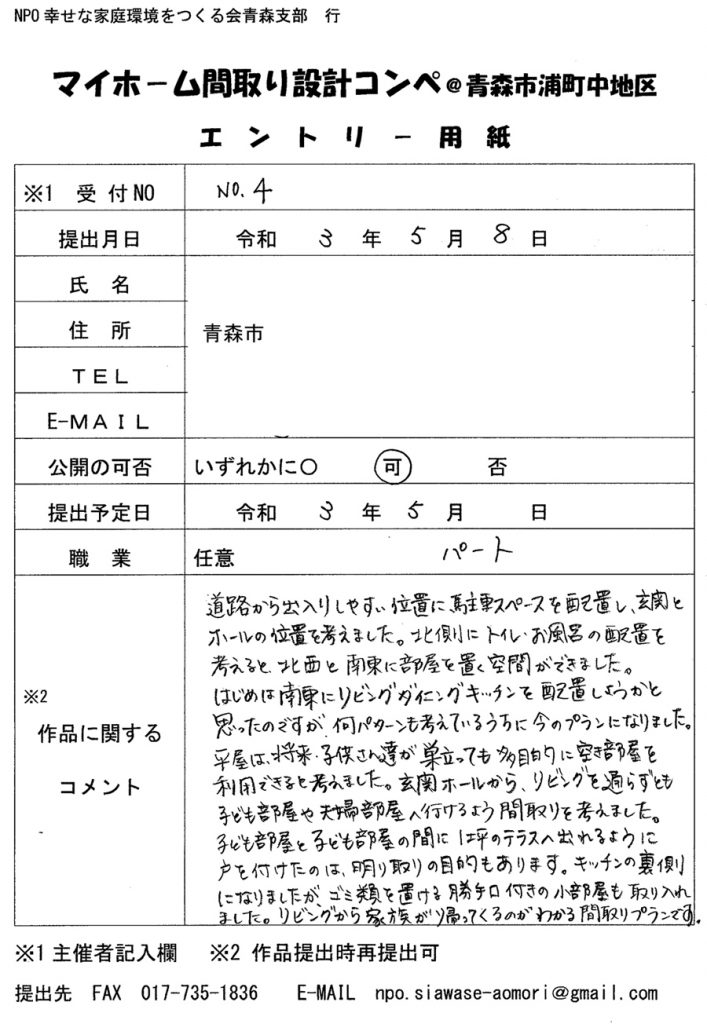 NPO幸せな家庭環境をつくる会青森支部　行
マイホーム間取り設計コンペ@青森市浦町中地区
エントリー用紙
※1　受付NO　NO.4
提出月日　令和 3 年 5 月 8 日
氏　名
住　所　青森市
ＴＥＬ
E-ＭＡＩＬ
公開の可否　いずれかに○　可　否
提出予定日　令和 3 年 5 月　日
職　業　任意　パート
※2
作品に関する
コメント
道路から出入りしやすい位置に駐車スペースを配置し、玄関と
ホールの位置を考えました。北側にトイレ・お風呂の配置を
考えると、北西と南東に部屋を置く空間ができました。
はじめは南東にリビングダイニングキッチンを配置しようかと
思ったのですが、何パターンも考えているうちに今のプランになりました。
平屋は、将来・子供さん達が巣立っても多目的に空き部屋を
利用できると考えました。玄関ホールから、リビングを通らずとも
子ども部屋や夫婦部屋へ行けるよう間取りを考えました。
子ども部屋と子ども部屋の間に1坪のテラスへ出れるように
戸を付けたのは、明り取りの目的もあります。キッチンの裏側
になりましたが、ゴミ類を置ける勝手口付きの小部屋も取り入れ
ました。リビングから家族が帰ってくるのがわかる間取りプランです。
※1主催者記入欄　※2 作品提出時再提出可
提出先　FAX　017-735-1836　E-MAIL　npo.siawase-aomori@gmail.com